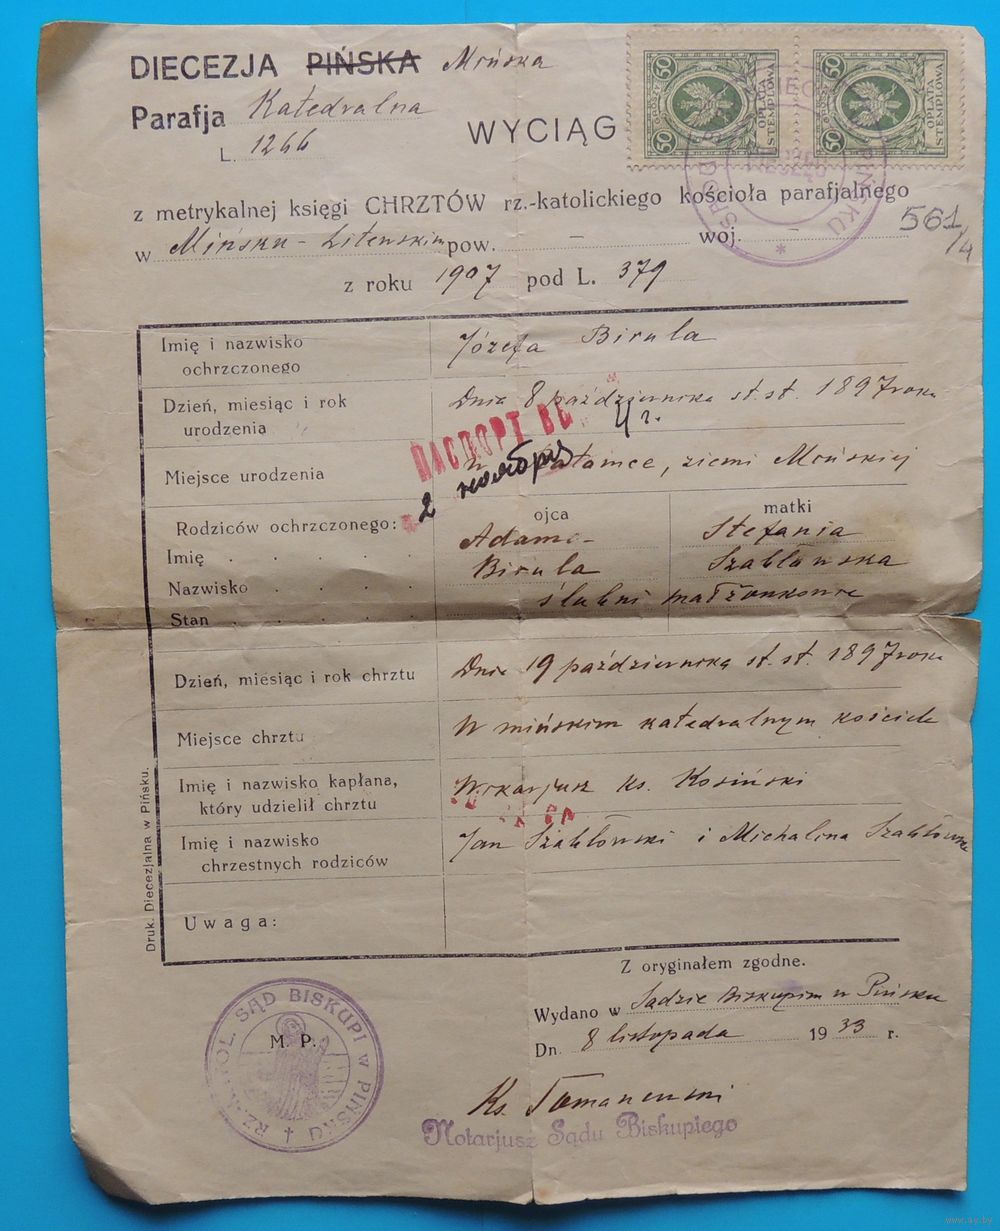 DIECEZJA PIŃSKA Mińska
Parafja Katedralna
L. 1266
WYCIĄG
50 GROSZY 50 OPŁATA STEMPLOWA
50 GROSZY 50 OPŁATA STEMPLOWA
z metrykalnej księgi CHRZTÓW rz.-katolickiego kościoła parafjalnego
w Mińsku-Litewskim pow. – woj. –
561/4
z roku 1907 pod L. 379
Imię i nazwisko ochrzczonego
Józefa Birula
Dzień, miesiąc i rok urodzenia
Dnia 8 października st. st. 1897 roku
ПАСПОРТ
2 г.
Miejsce urodzenia
W ziemi Mińskiej
2 ноября
Rodziców ochrzczonego: ojca matki
Imię Adama Stefania
Nazwisko Birula Szabłowska
Stan ślubni małżonkowie
Dzień, miesiąc i rok chrztu
Dnia 19 października st. st. 1897 roku
Miejsce chrztu
W mińskim katedralnym kościele
Imię i nazwisko kapłana, który udzielił chrztu
Wikarjusz ks. Kosiński
Imię i nazwisko chrzestnych rodziców
Jan Szabłowski i Michalina Szabłowska
Uwaga:
Druk. Diecezjalna w Pińsku.
Z oryginałem zgodne.
Wydano w Sądzie Biskupim w Pińsku
Dn. 8 listopada 1933 r.
RZ. KATOL. SĄD BISKUPI w PIŃSKU
M. P.
Ks. Tomanewski
Notarjusz Sądu Biskupiego
www.ay.by